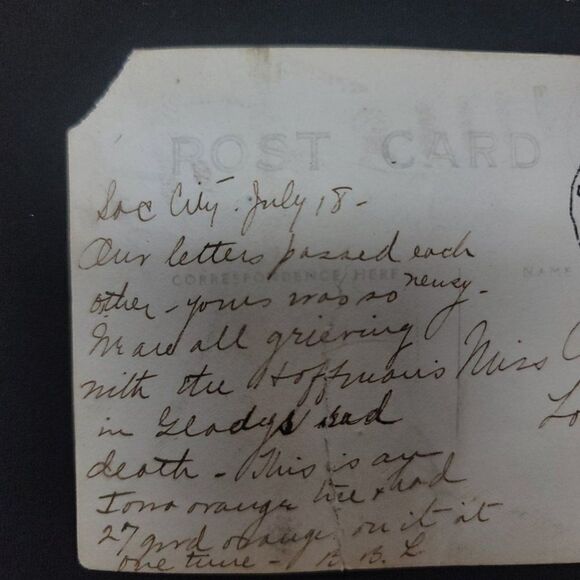 POST CARD
Sac City. July 18 -
Our letters passed each
CORRESPONDENCE HERE
NAME
other - yours was so newsy -
We are all grieving
Miss
with the Hoffmans
in Gladys sad
death - This is an
Iowa orange tree & had
27 good oranges on it at
one time - B. B. L